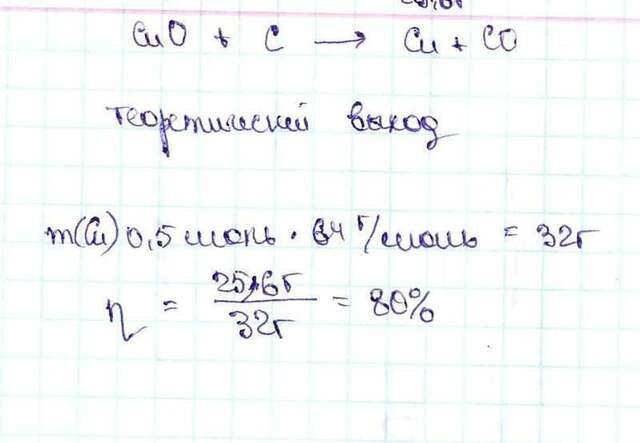 CuO + C → Cu + CO
теоретический выход
m(Cu) 0,5 моль · 64 г/моль = 32г
η = 25,6г / 32г = 80%